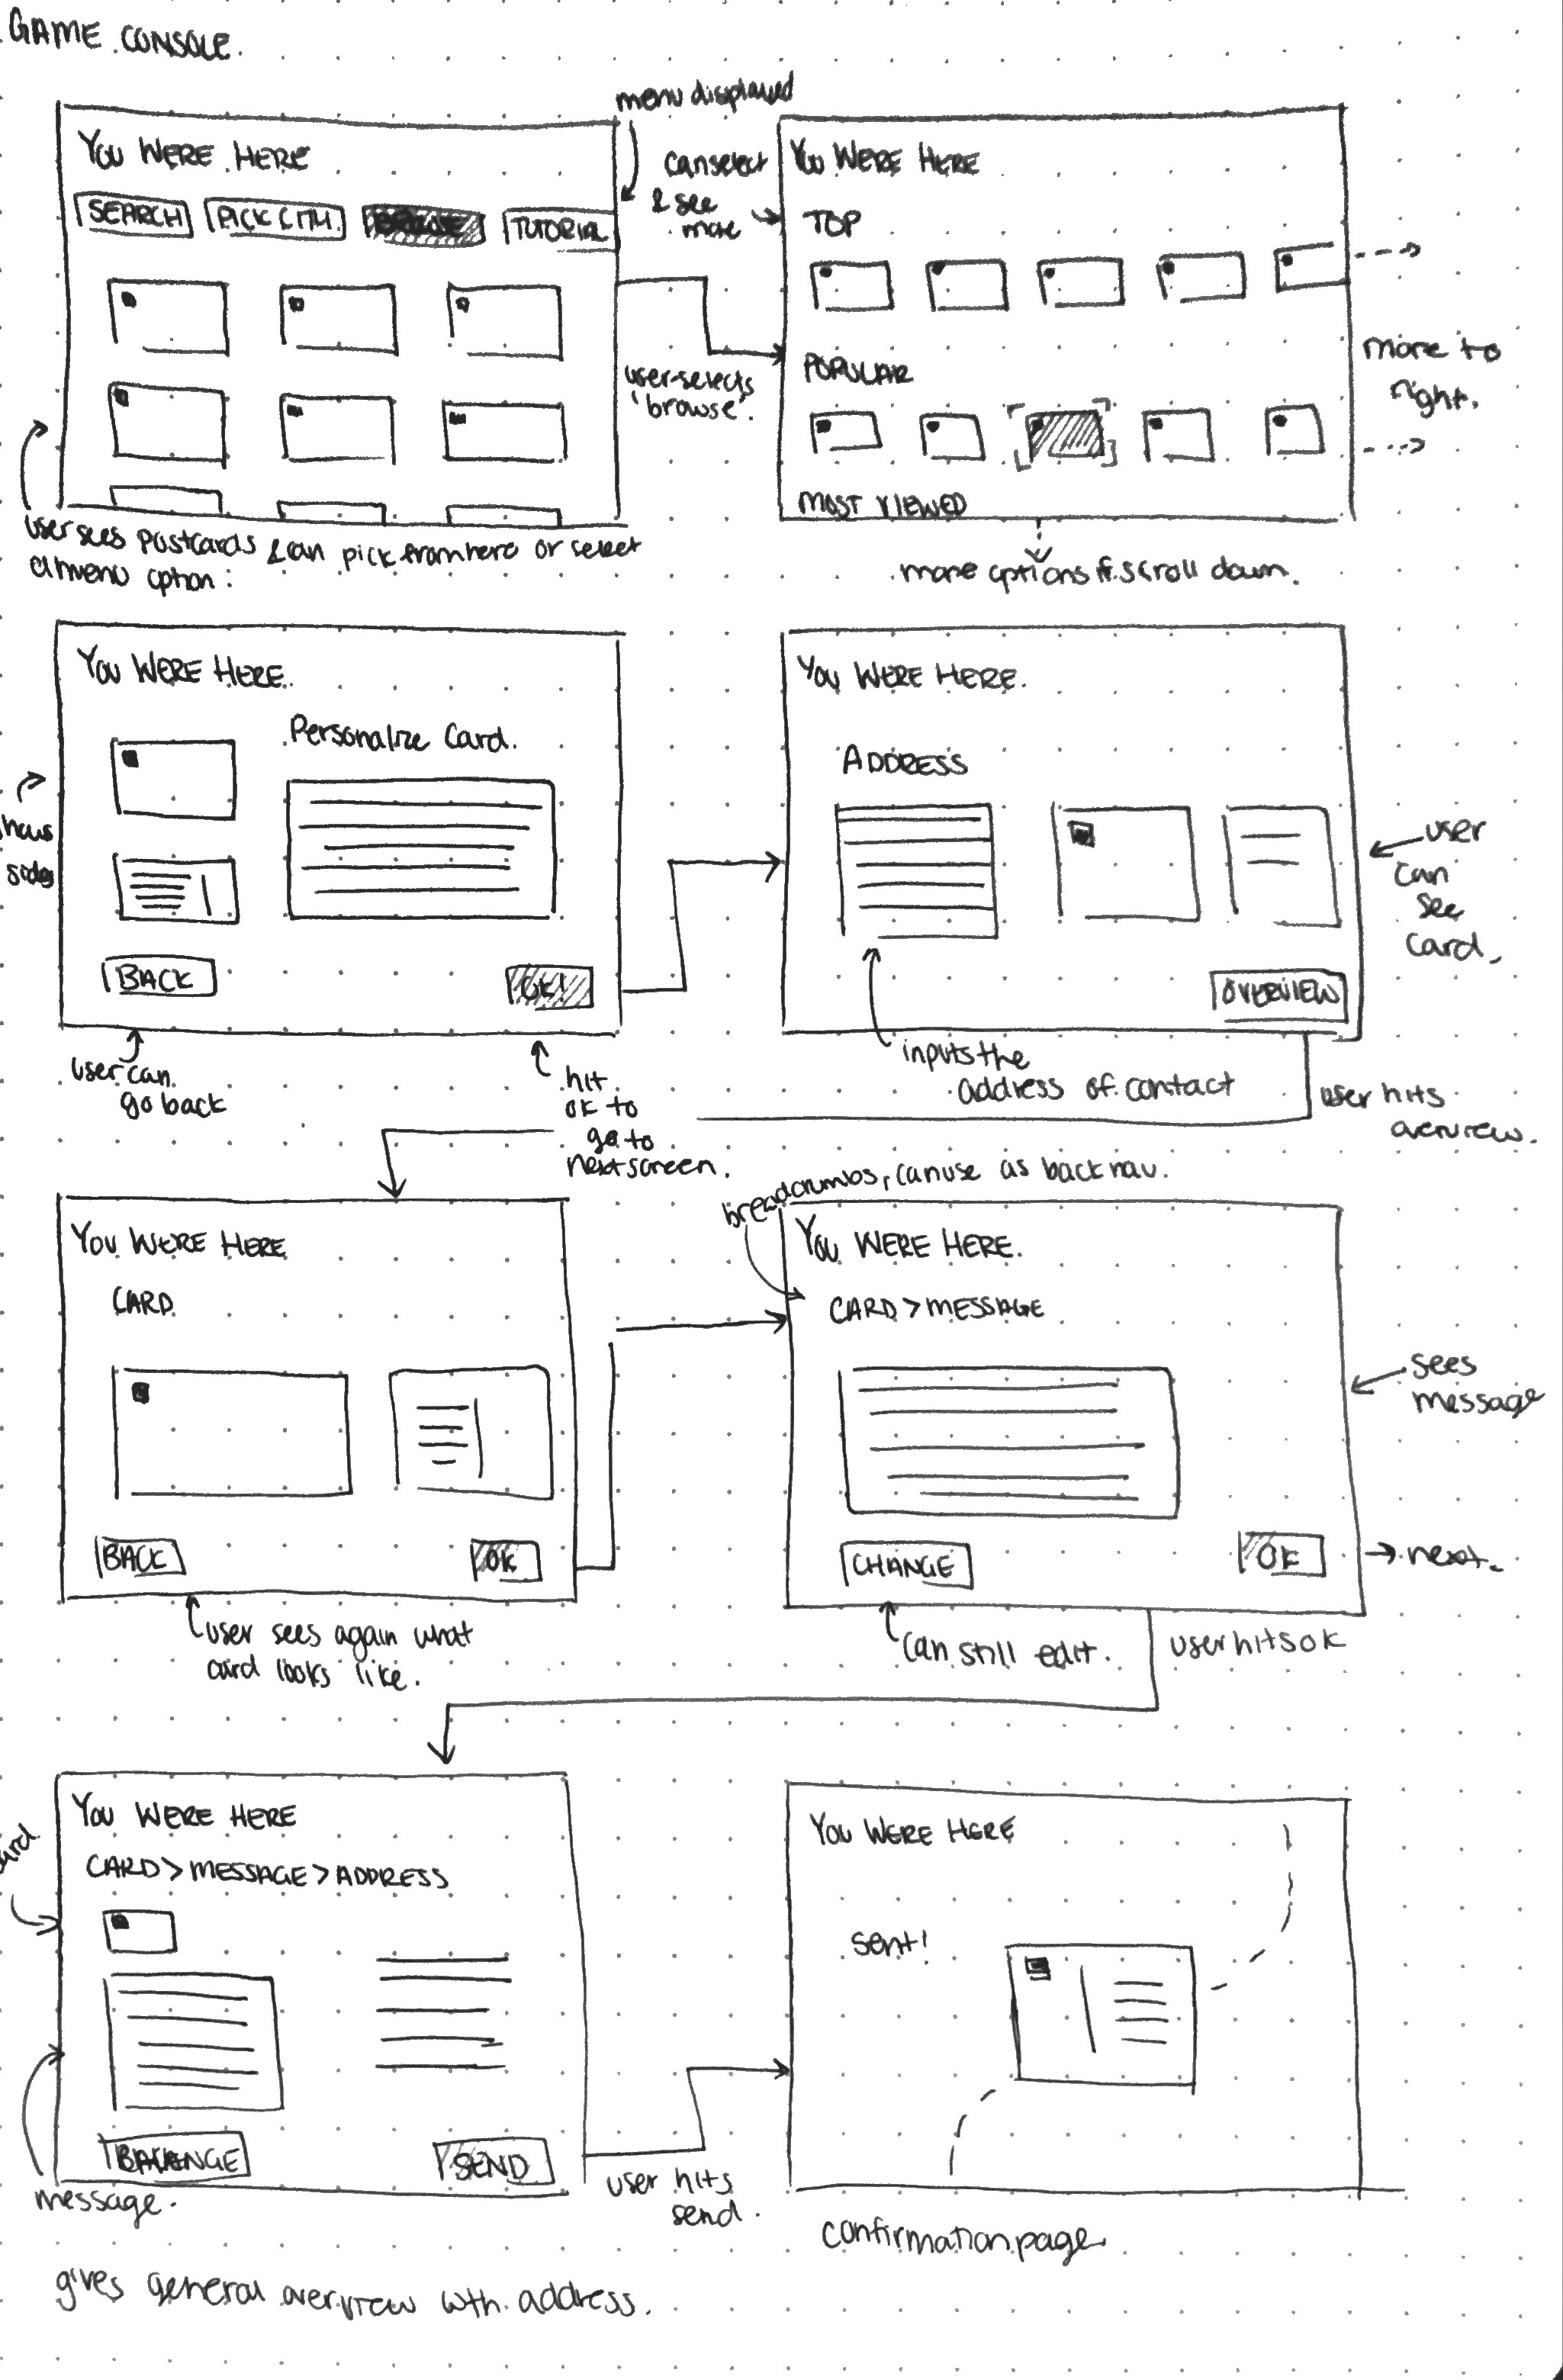 GAME CONSOLE.
menu displayed
YOU WERE HERE
SEARCH
PICK CITY.
BROWSE
TUTORIAL
can select
& see
more
user selects
'browse'.
user sees postcards & can pick from here or select
a menu option:
YOU WERE HERE
TOP
POPULAR
MOST VIEWED
more to
right.
more options if scroll down.
YOU WERE HERE.
Personalize Card.
sides
BACK
OK!
user can
go back
hit
ok to
go to
next screen.
YOU WERE HERE.
ADDRESS
OVERVIEW
user
can
see
card.
inputs the
address of contact
user hits
overview.
YOU WERE HERE
CARD
BACK
OK
user sees again what
card looks like.
breadcrumbs, can use as back nav.
YOU WERE HERE.
CARD > MESSAGE
CHANGE
OK
sees
message
next.
can still edit.
user hits ok
YOU WERE HERE
CARD > MESSAGE > ADDRESS
SEND
message.
user hits
send.
gives general overview with address.
YOU WERE HERE
sent!
confirmation page